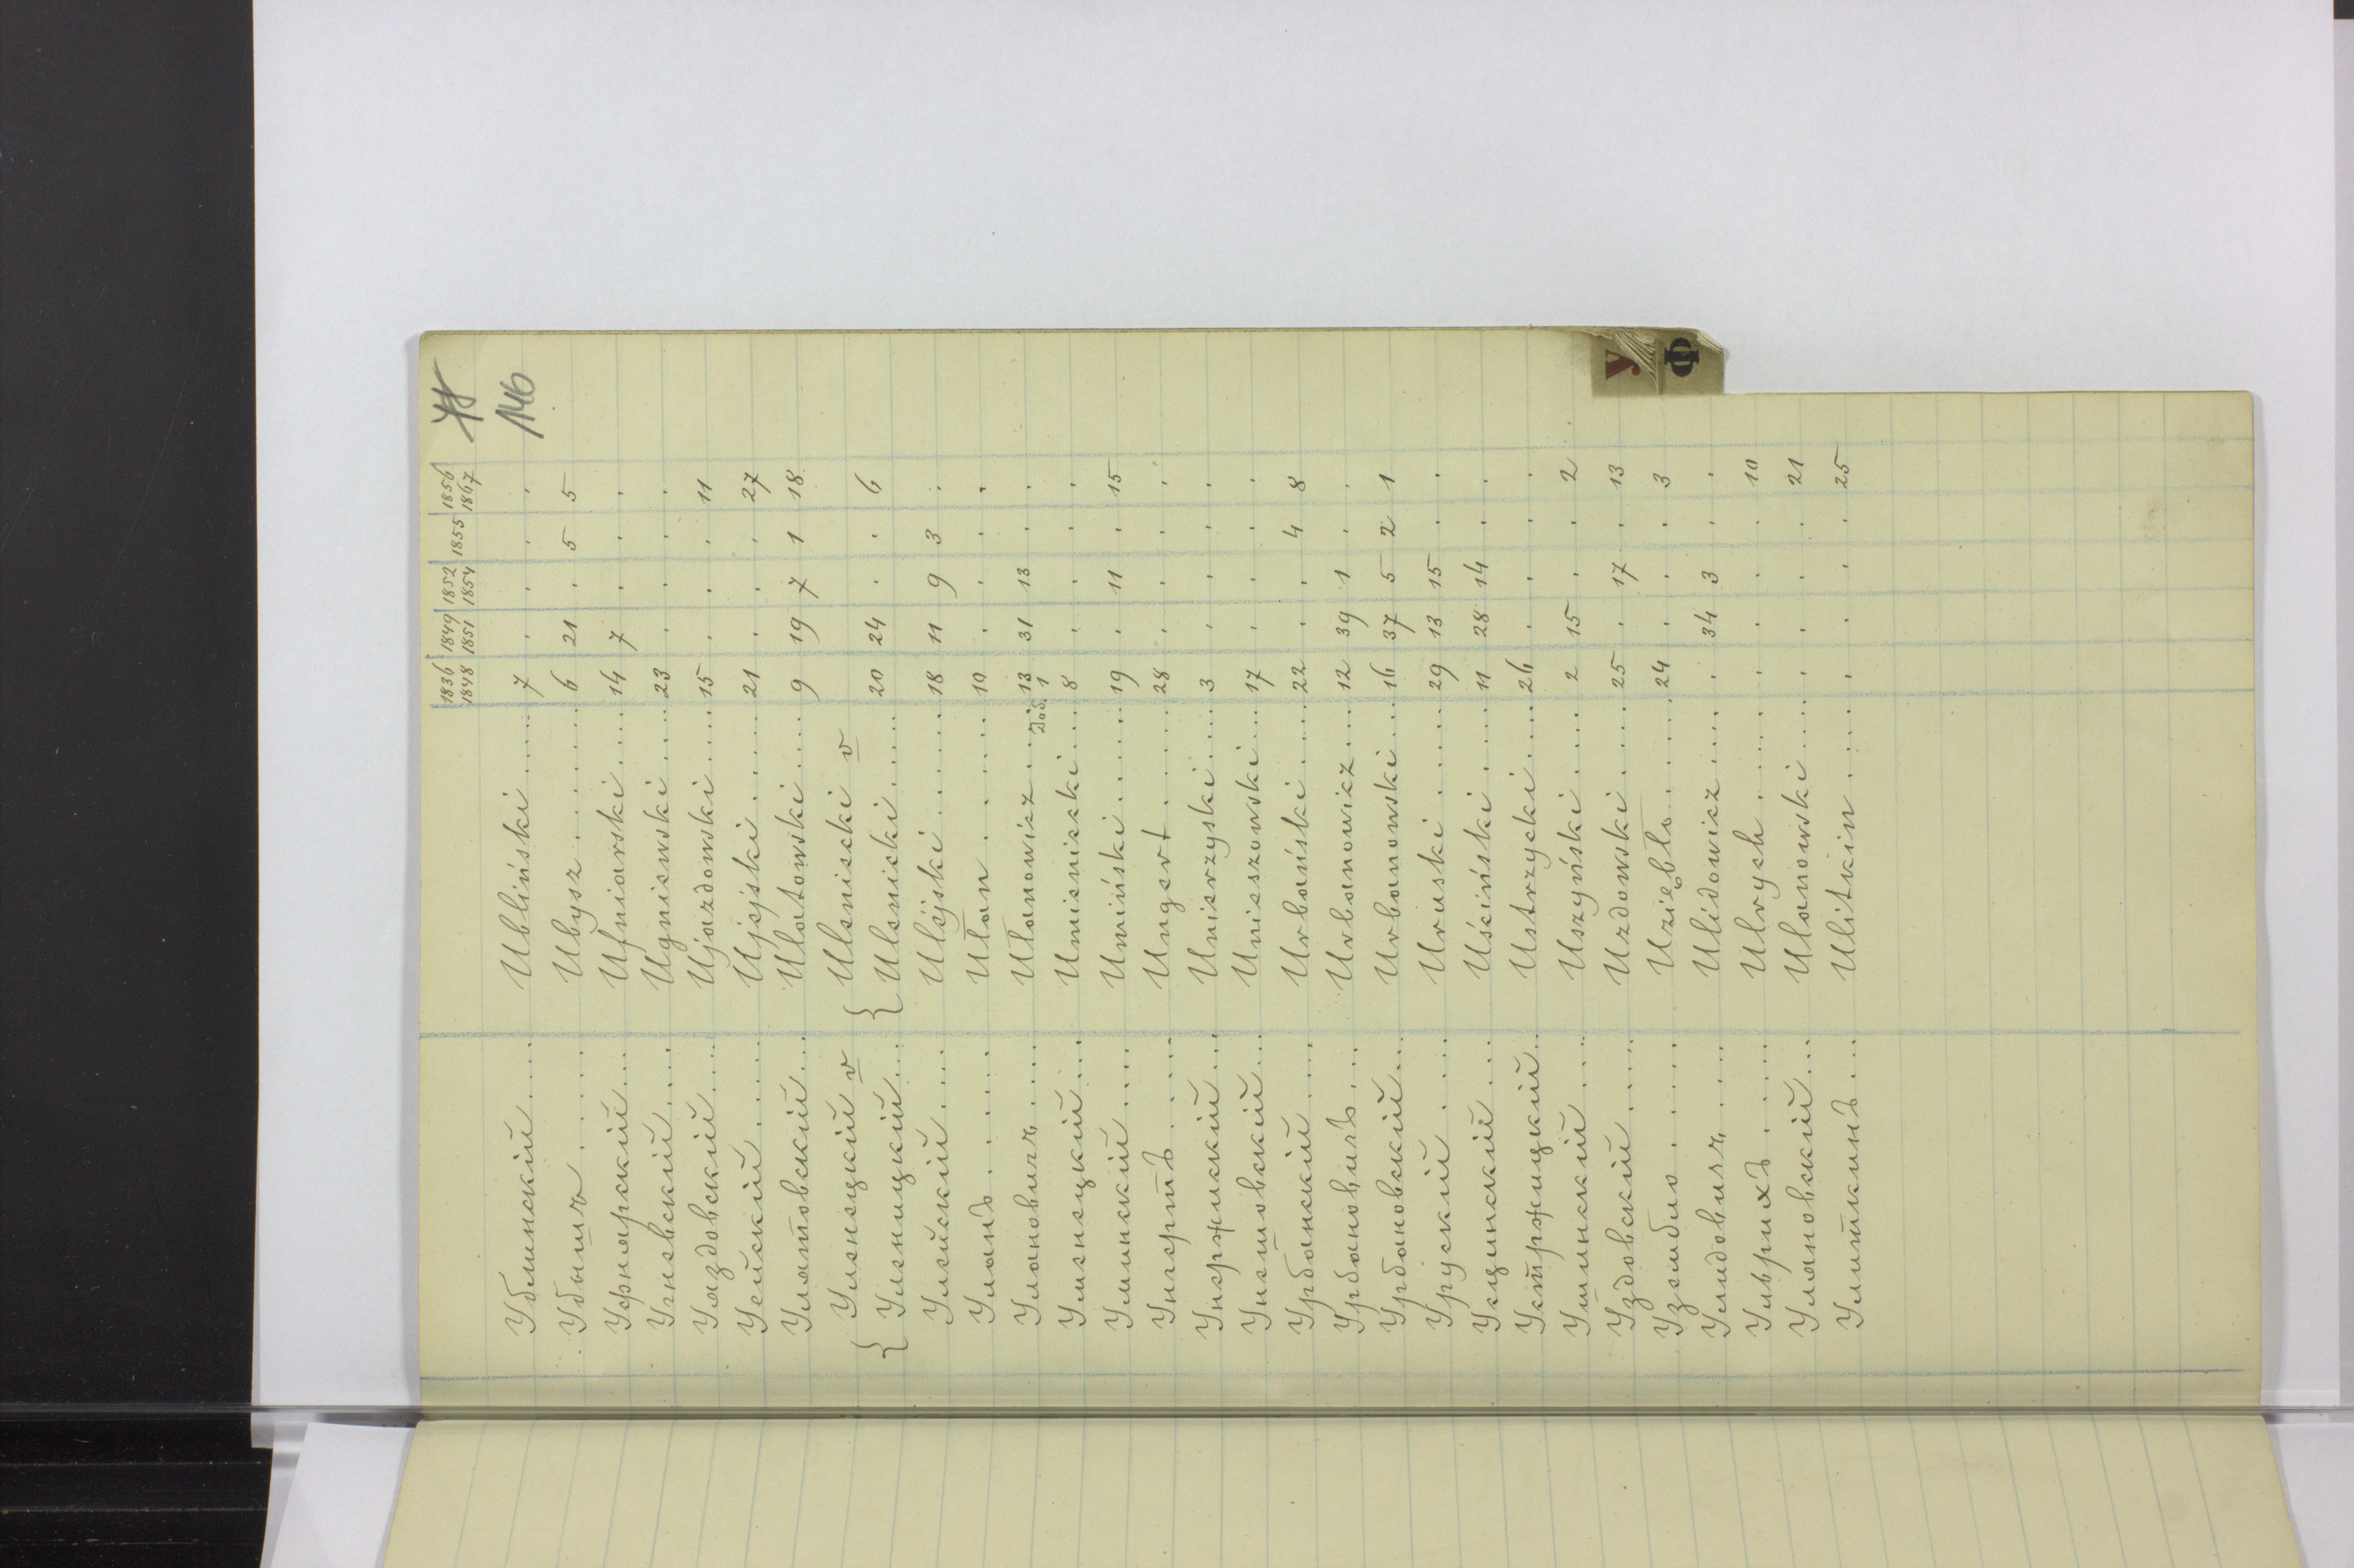 1836 1849 1852 1855 1856
1848 1851 1854 1867
146
Ублинскій .... Ubliński ..... 7 . . . .
Убышъ ..... Ubysz ...... 6 21 . 5 5
Уфнарскій ... Ufniarski .... 14 7 . . .
Угневскій .... Ugniewski .... 23 . . . .
Уаздовскій .... Ujazdowski .... 15 . . . 11
Уейскій ..... Ujejski ...... 21 . . . 27
Улатовскій ... Ulatowski .... 9 19 7 1 18
{ Уленецкій v Uleniecki v
{ Уленицкій ... { Ulenicki ..... 20 24 . . 6
Улейскій .... Ulejski ...... 18 11 9 3 .
Уланъ ..... Ułan ...... 10 . . . .
Улановичъ .... Ułanowicz .... 13 31 13 . .
Доб. 1
Уменецкій ... Umieniecki ... 8 . . . .
Уминскій .... Umiński ...... 19 . 11 . 15
Унгертъ ..... Ungert ...... 28 . . . .
Унержискій ... Unierzyski .... 3 . . . .
Унешовскій ... Unieszowski ... 17 . . . .
Урбанскій .... Urbański ..... 22 . . 4 8
Урбановичъ ... Urbanowicz ... 12 39 1 . .
Урбановскій ... Urbanowski ... 16 37 5 2 1
Урускій .... Uruski ...... 29 13 15 . .
Усцинскій ... Uściński ..... 11 28 14 . .
Устржицкій .. Ustrzycki .... 26 . . . .
Ушинскій .... Uszyński .... 2 15 . . 2
Уздовскій .... Uzdowski .... 25 . 17 . 13
Узембло ..... Uziębło ...... 24 . . . 3
Улидовичъ .... Ulidowicz .... . 34 3 . .
Ульрихъ ..... Ulrych ...... . . . . 10
Улановскій ... Ulanowski .... . . . . 21
Улиткинъ ... Ulitkin ..... . . . . 25
У
Ф